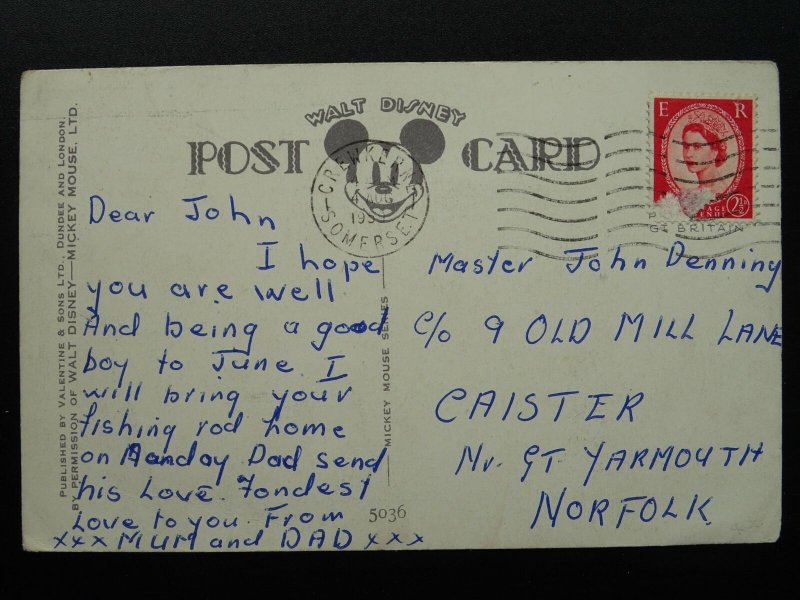 WALT DISNEY
POST CARD
CREWKERNE
AUG
195
SOMERSET
E R
POSTAGE
2½D
GT BRITAIN
PUBLISHED BY VALENTINE & SONS LTD., DUNDEE AND LONDON,
BY PERMISSION OF WALT DISNEY—MICKEY MOUSE, LTD.
Dear John
I hope
you are well
And being a good
boy to June. I
will bring your
fishing rod home
on Monday Dad send
his Love. Fondest
Love to you. From
xxx MUM and DAD xxx
MICKEY MOUSE SERIES
5036
Master John Denning
c/o 9 OLD MILL LANE
CAISTER
Nr. GT YARMOUTH
NORFOLK.